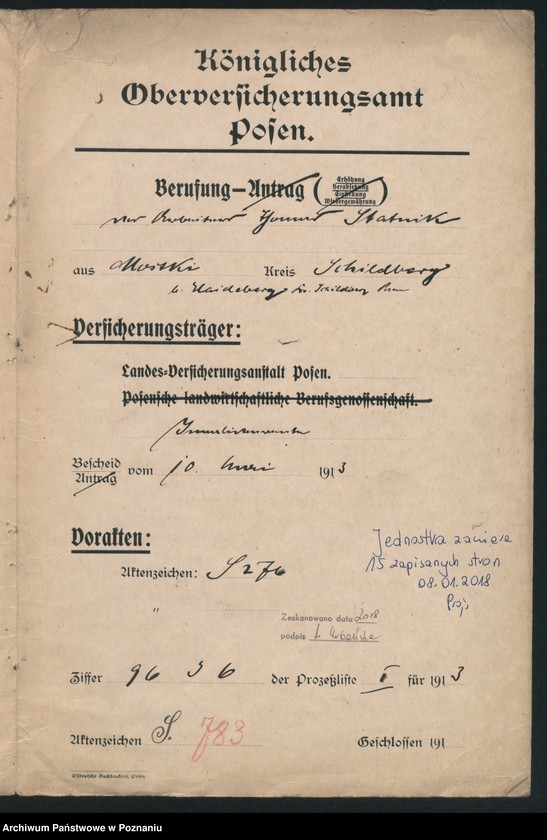 Königliches
Oberversicherungsamt
Posen.
Berufung – Antrag (Erhöhung
Herabsetzung
Einstellung
Wiedergewährung)
des Arbeiters Statnik
aus Kreis Schildberg
b. Haideberg Kr. Schildberg
Versicherungsträger:
Landes-Versicherungsanstalt Posen.
Posensche landwirtschaftliche Berufsgenossenschaft.
Invalidenrente
Bescheid
Antrag vom 10. 1913
Vorakten:
Aktenzeichen: S 276
"
Jednostka zawiera
15 zapisanych stron
08.01.2018
Zeskanowano data 2018
podpis
Ziffer 96 36 der Prozeßliste I für 1913
Aktenzeichen S. 783 Geschlossen 191
Ostdeutsche Buchdruckerei, Posen.
Archiwum Państwowe w Poznaniu